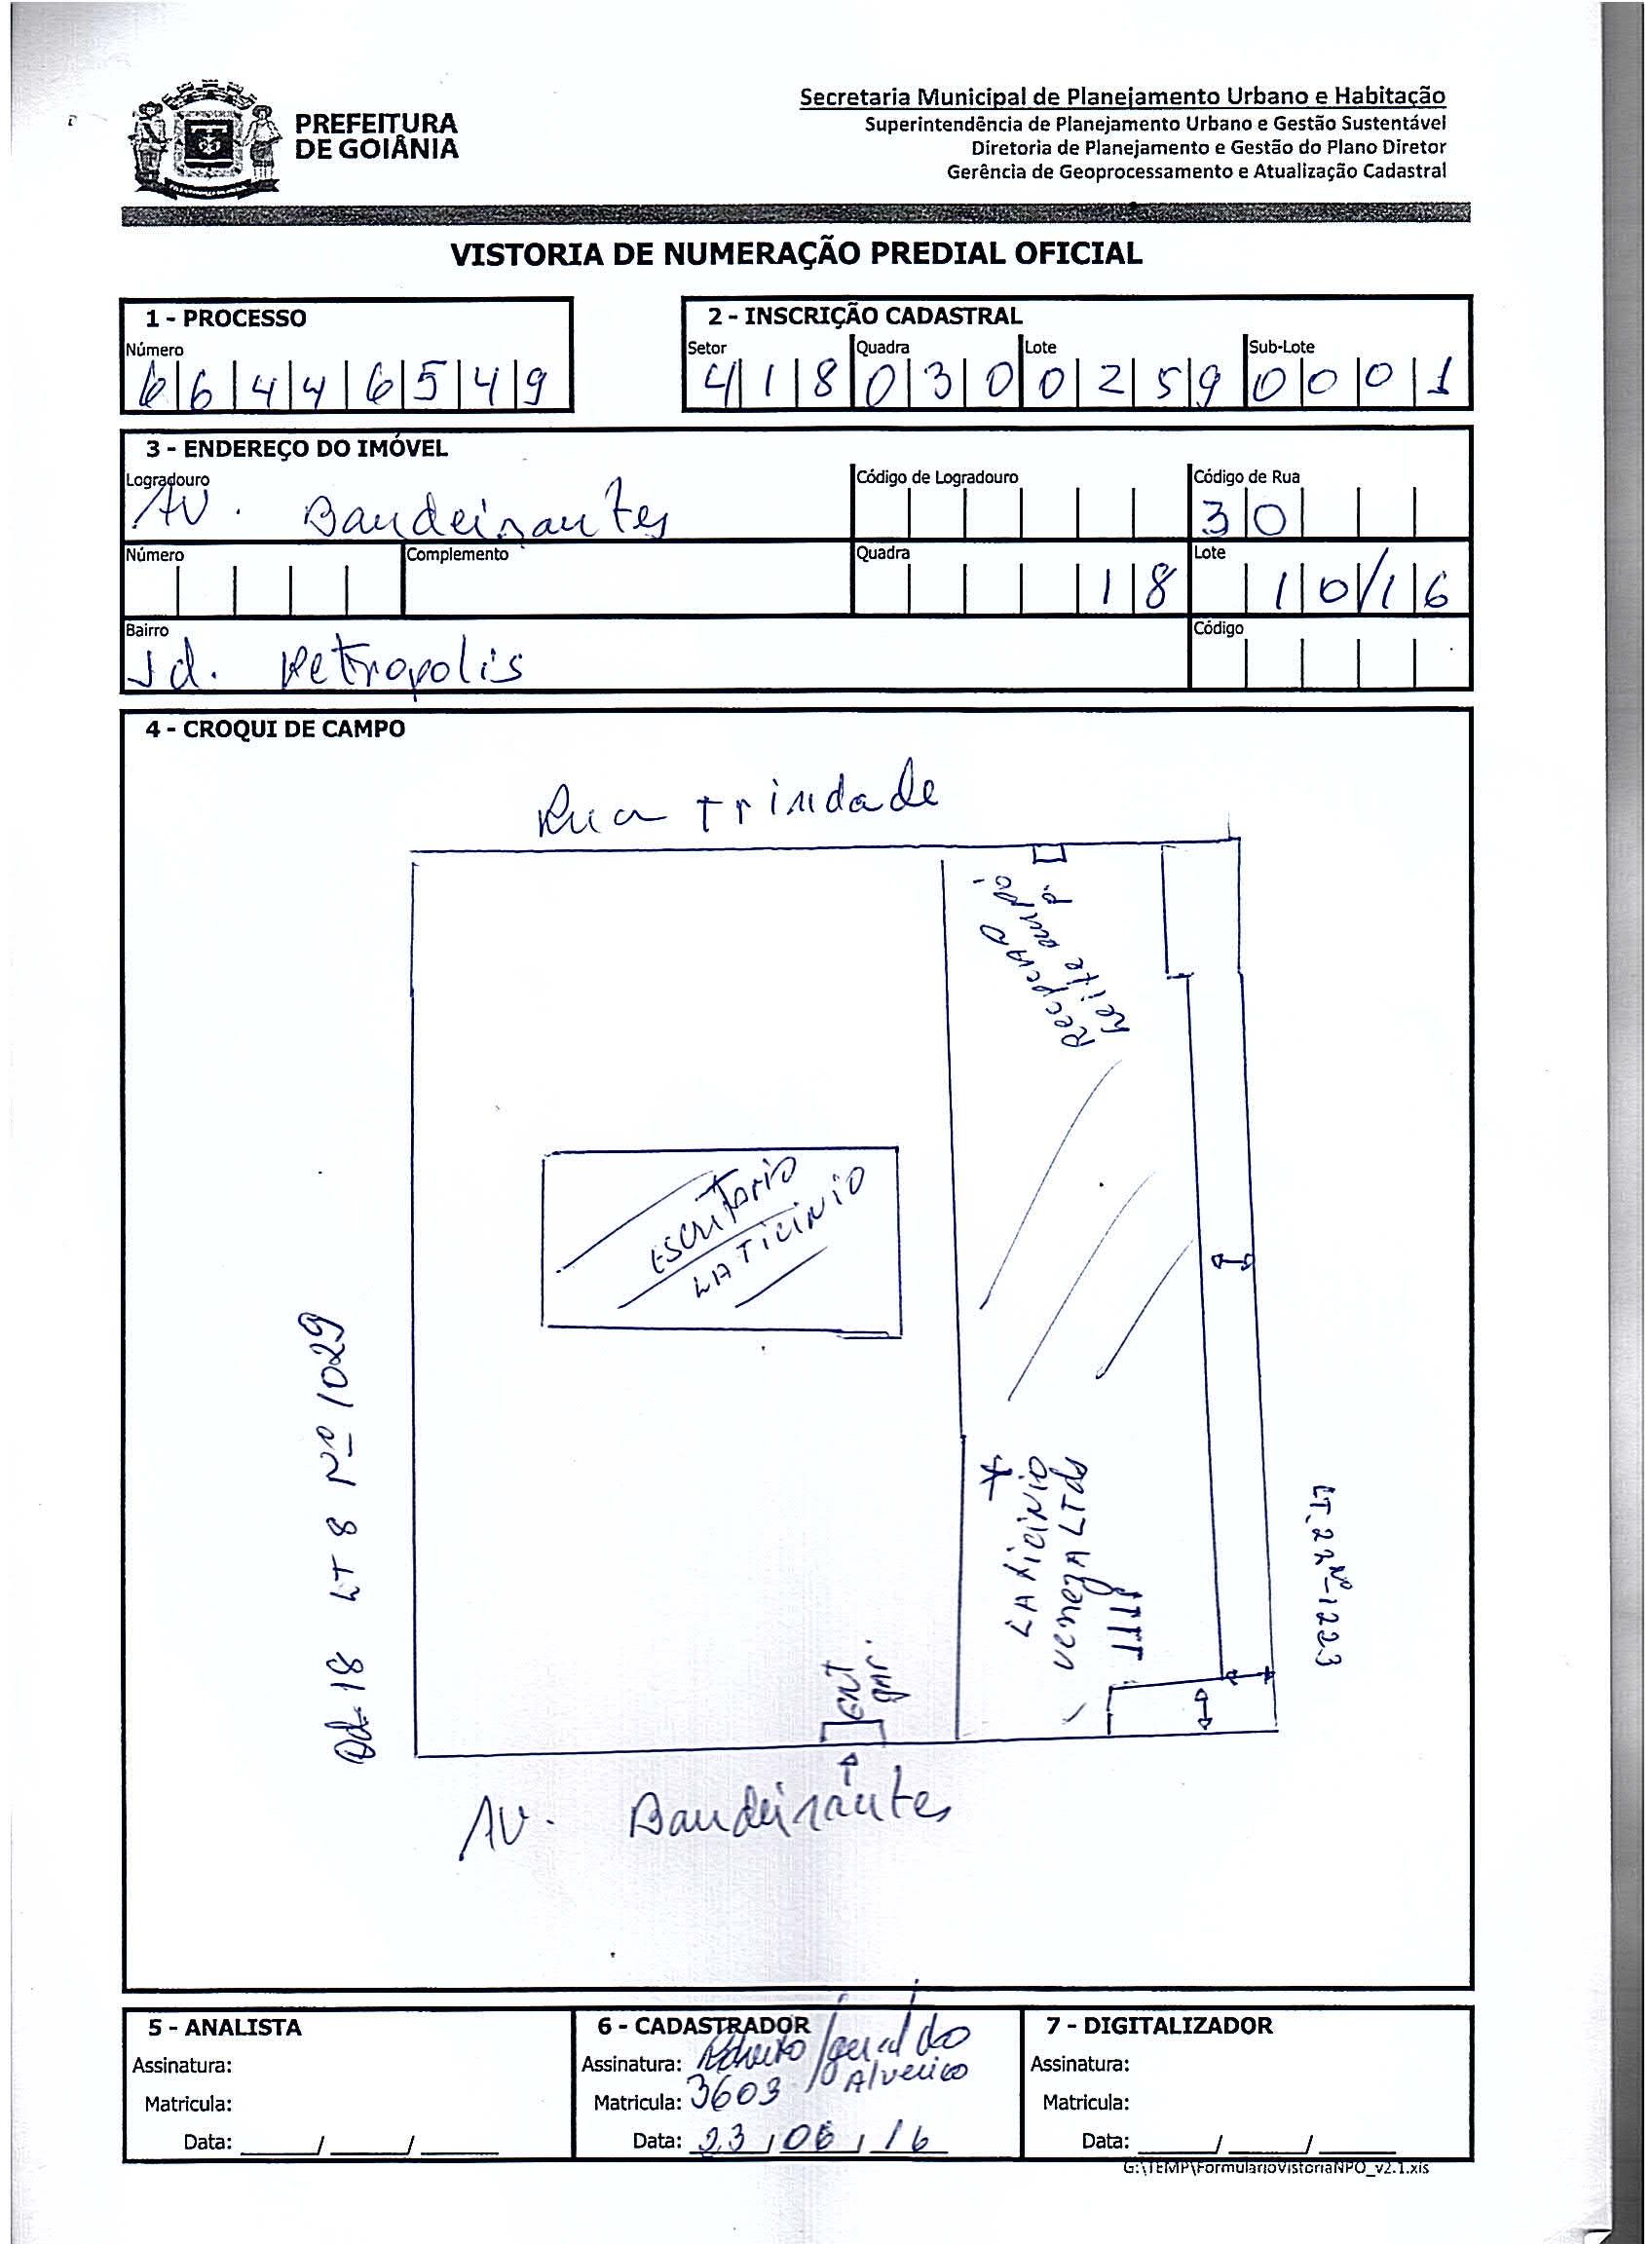 PREFEITURA
DE GOIÂNIA
Secretaria Municipal de Planejamento Urbano e Habitação
Superintendência de Planejamento Urbano e Gestão Sustentável
Diretoria de Planejamento e Gestão do Plano Diretor
Gerência de Geoprocessamento e Atualização Cadastral
VISTORIA DE NUMERAÇÃO PREDIAL OFICIAL
1 - PROCESSO
Número
66446549
2 - INSCRIÇÃO CADASTRAL
Setor Quadra Lote Sub-Lote
418 030 0259 0001
3 - ENDEREÇO DO IMÓVEL
Logradouro Código de Logradouro Código de Rua
AV. Bandeirantes 30
Número Complemento Quadra Lote
18 10/16
Bairro Código
Jd. Petropolis
4 - CROQUI DE CAMPO
Rua Trindade
Recepção
Leite
p.
ESCRITORIO
LATICINIO
Qd-18 LT 8 Nº 1029
LATICINIO
VENEZA LTDA
LT. 22 Nº-1223
ENT
AV. Bandeirantes
5 - ANALISTA
Assinatura:
Matricula:
Data: / /
6 - CADASTRADOR
Assinatura: / geraldo
Matricula: 3603
Data: 23/06/16
7 - DIGITALIZADOR
Assinatura:
Matricula:
Data: / /
G:\TEMP\FormularioVistoriaNPO_v2.1.xls